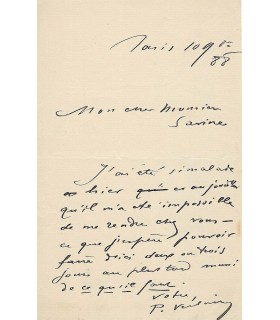 Paris 10 9bre
88
Mon cher Monsieur
Savine
J'ai été si malade
hier et aujourd'hui
qu'il m'a été impossible
de me rendre chez vous —
ce que j'espère pouvoir
faire d'ici deux ou trois
jours au plus tard muni
de ce qu'il faut.
Votre
P. Verlaine